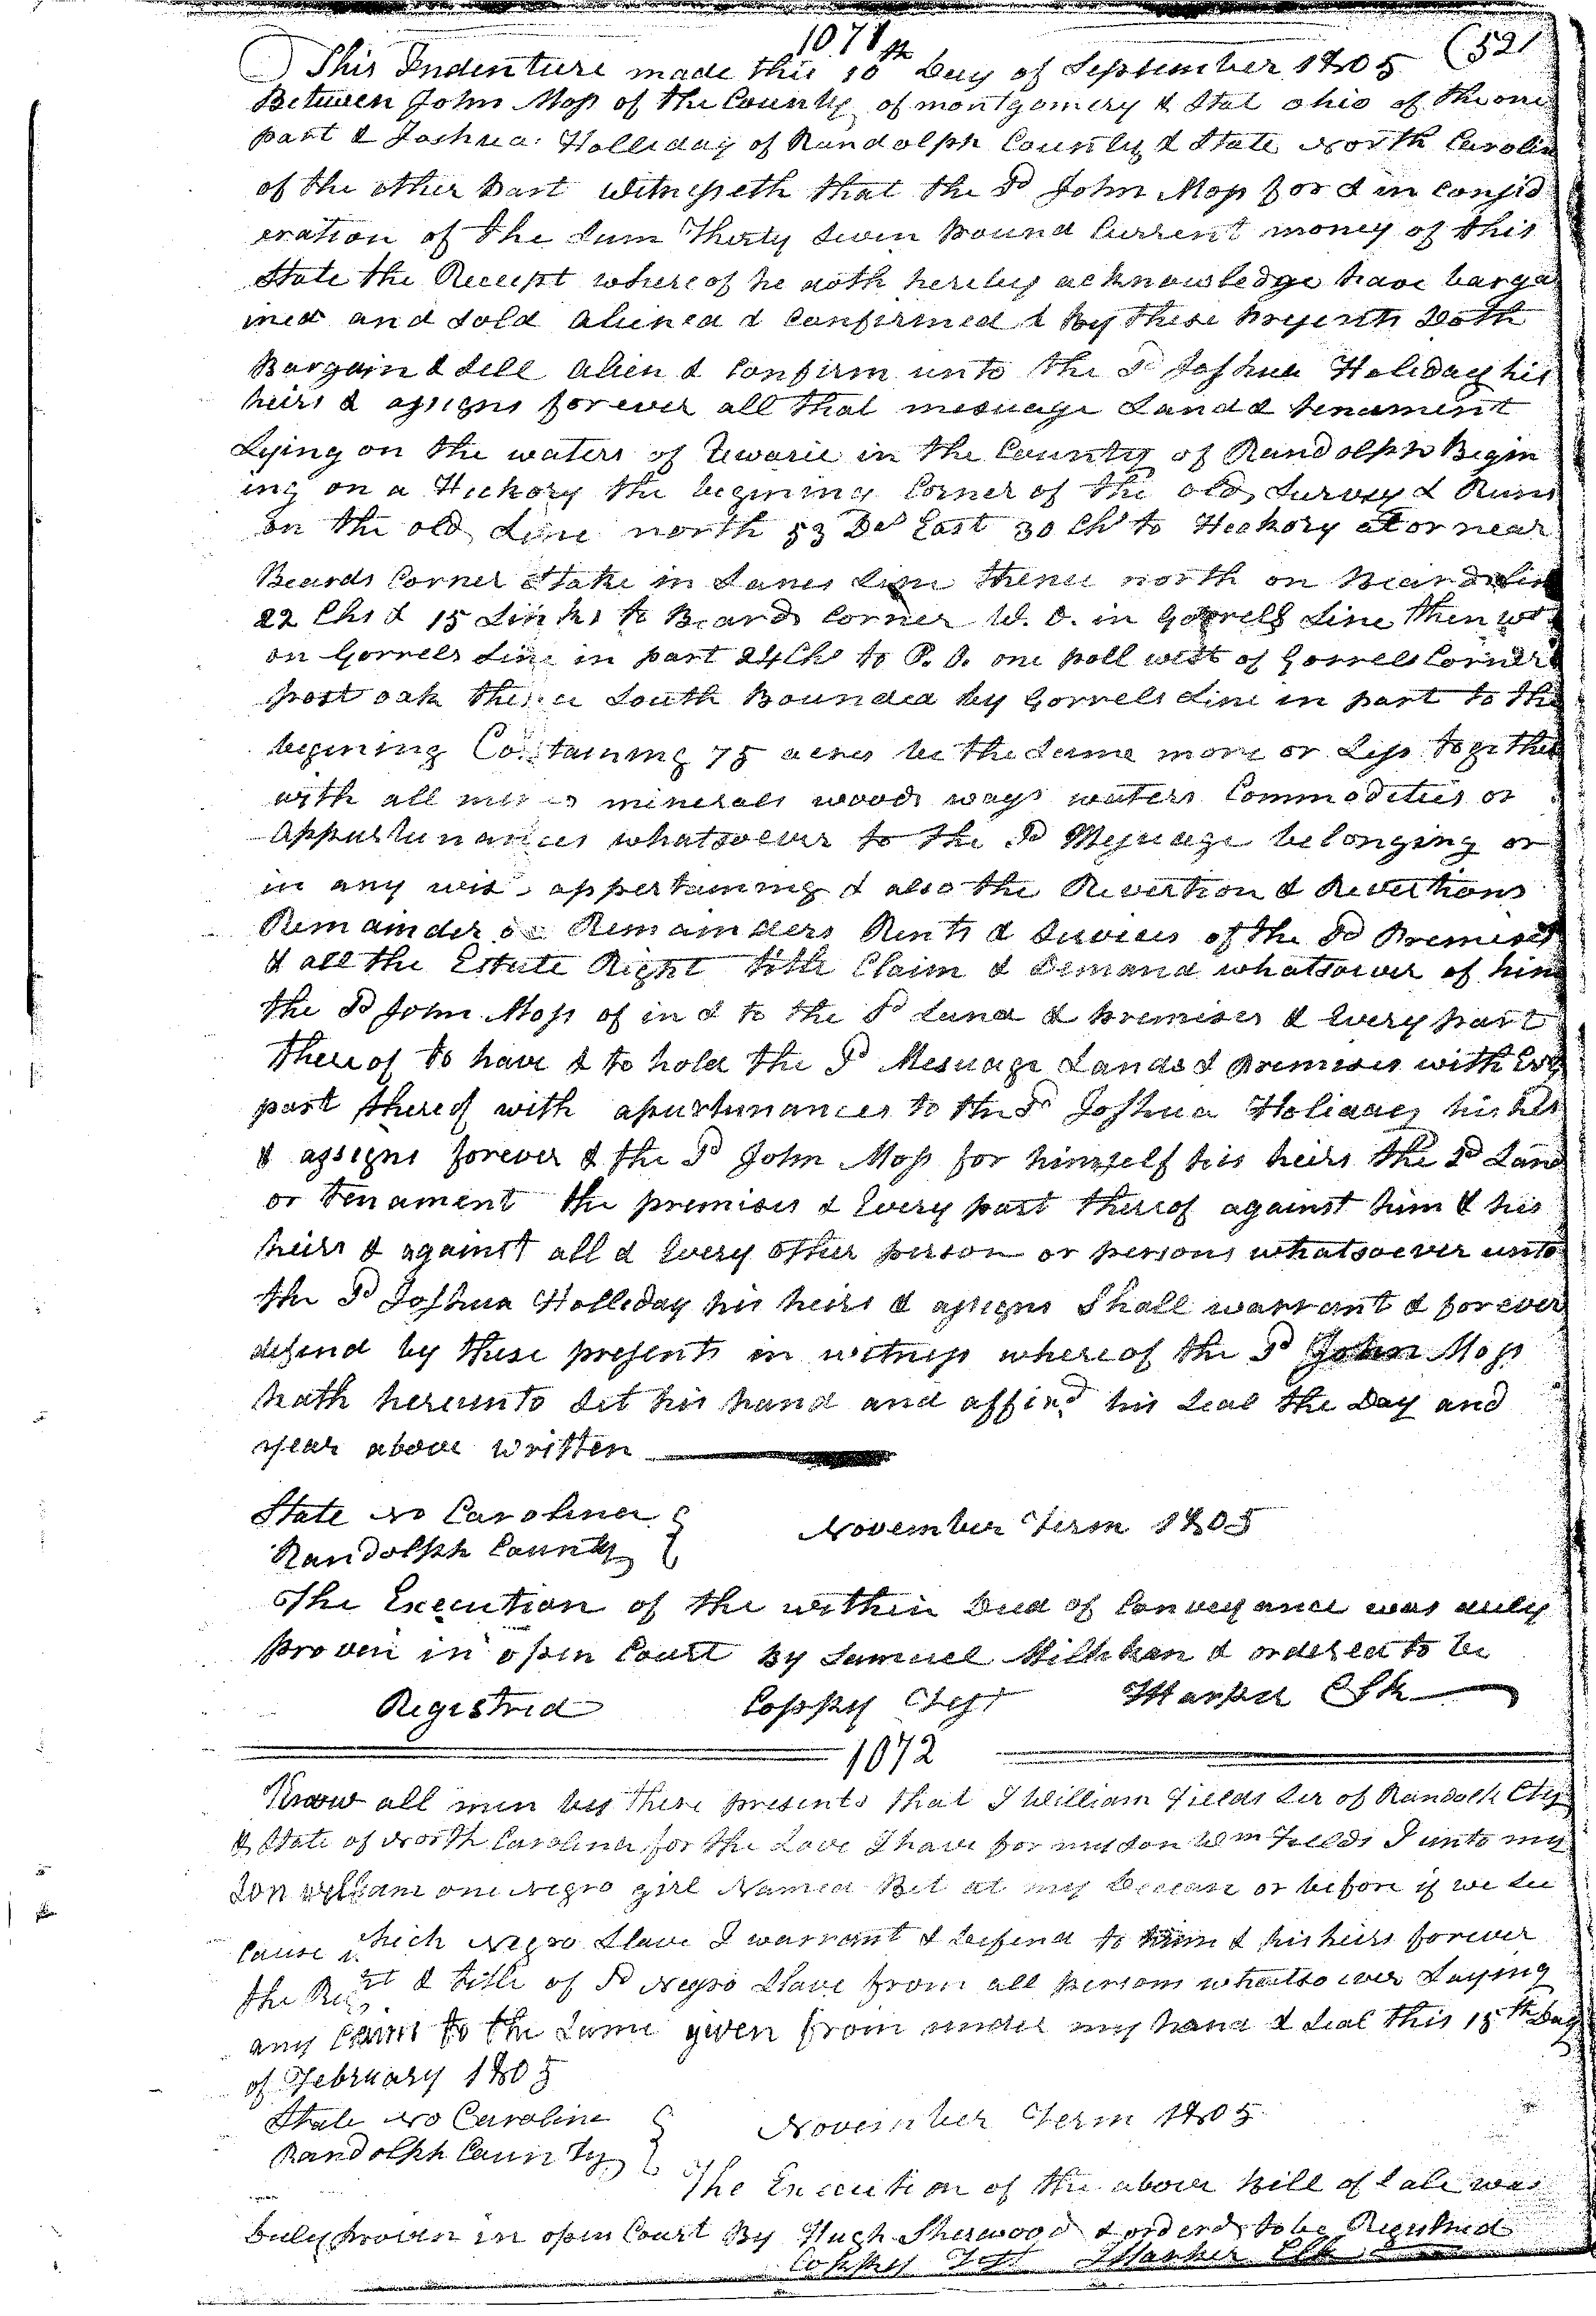 1071 (521
This Indenture made this 10th Day of September 1805
Between John Moss of the County of montgomery & Stat ohio of the one
part & Joshua Holliday of Randolph County & State North Carolin
of the other part Witnesseth that the Sd John Moss for & in consid
eration of the Sum Thirty Seven pound Current money of this
State the Receipt where of he doth hereby acknowledge have barga
ined and Sold aliened & Confirmed & By these presents Doth
Bargain & Sell alien & Confirm unto the Sd Joshua Holeday his
heirs & assigns forever all that mesuage Land & tenament
Lying on the waters of Uwarie in the County of Randolph Begin
ing on a Hickory the begining Corner of the old Survey & Runs
on the old Line north 53 Ds East 30 Chs to Heckory at or near
Beards Corner Stake in Lanes Line thence north on Beards Lin
22 Chs & 15 Links to Beards Corner W. O. in Gorrells Line then wt
on Gorrels Line in part 24 Chs to P. O. one poll west of Gorrels Corner
post oak thence South Bounded by Gorrels Line in part to the
begining Containing 75 acres be the Same more or Less together
with all mines minerals woods ways waters Commodeties or
Appurtunances whatsoever to the Sd Messuage belonging or
in any wise appertaining & also the Revertion & Revertions
Remainder or Remainders Rents & Services of the Sd Premises
& all the Estate Right title Claim & Demand whatsoever of him
the Sd John Moss of in & to the Sd Land & premises & Every part
there of to have & to hold the Sd Mesuage Lands & premises with Evry
part thereof with apurtunances to the Sd Joshua Holiday his hrs
& assigns forever & the Sd John Moss for himself his heirs the Sd Land
or tenament the premises & Every part thereof against him & his
heirs & against all & Every other person or persons whatsoever unto
the Sd Joshua Holleday his heirs & assigns Shall warrant & forever
defend by these presents in witness where of the Sd John Moss
hath hereunto Set his hand and affixd his Seal the Day and
year above written
State No Carolina November Term 1805
Randolph County
The Execution of the within Deed of Conveyance was duly
proven in open Court By Samuel Millikan & ordered to be
Registred Coppy Test JHarper Clk
1072
Know all men by these presents that I William Fields Ser of Randolh Cty
& State of North Carolina for the Love I have for my son Wm Fields I unto my
Son William one Negro girl Named Bet at my Decease or before if we See
Cause which Negro Slave I warrant & defend to him & his heirs forever
the Right & title of Sd Negro Slave from all persons whatso ever Laying
any Claim to the Same given from under my hand & Seal this 15th Day
of February 1805
State No Caroline November Term 1805
Randolph County
The Execution of the above Bill of Sale was
Duly proven in open Court By Hugh Sherwood & orderd to be Registred
Coppy Test JHarper Clk